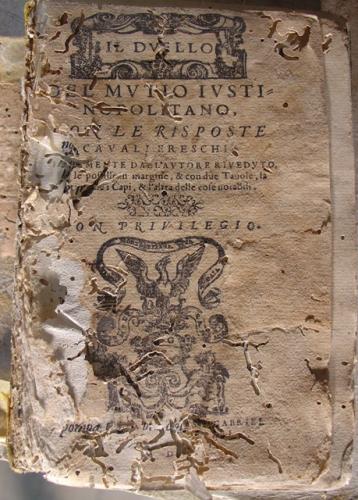 IL DVELLO
DEL MVTIO IVSTI-
NOPOLITANO,
CON LE RISPOSTE
CAVALIERESCHE
DAL'AVTORE RIVEDVTO,
le postille in margine, & con due Tauole, la
Capi, & l'altra delle cose notabili.
CON PRIVILEGIO.
GABRIEL